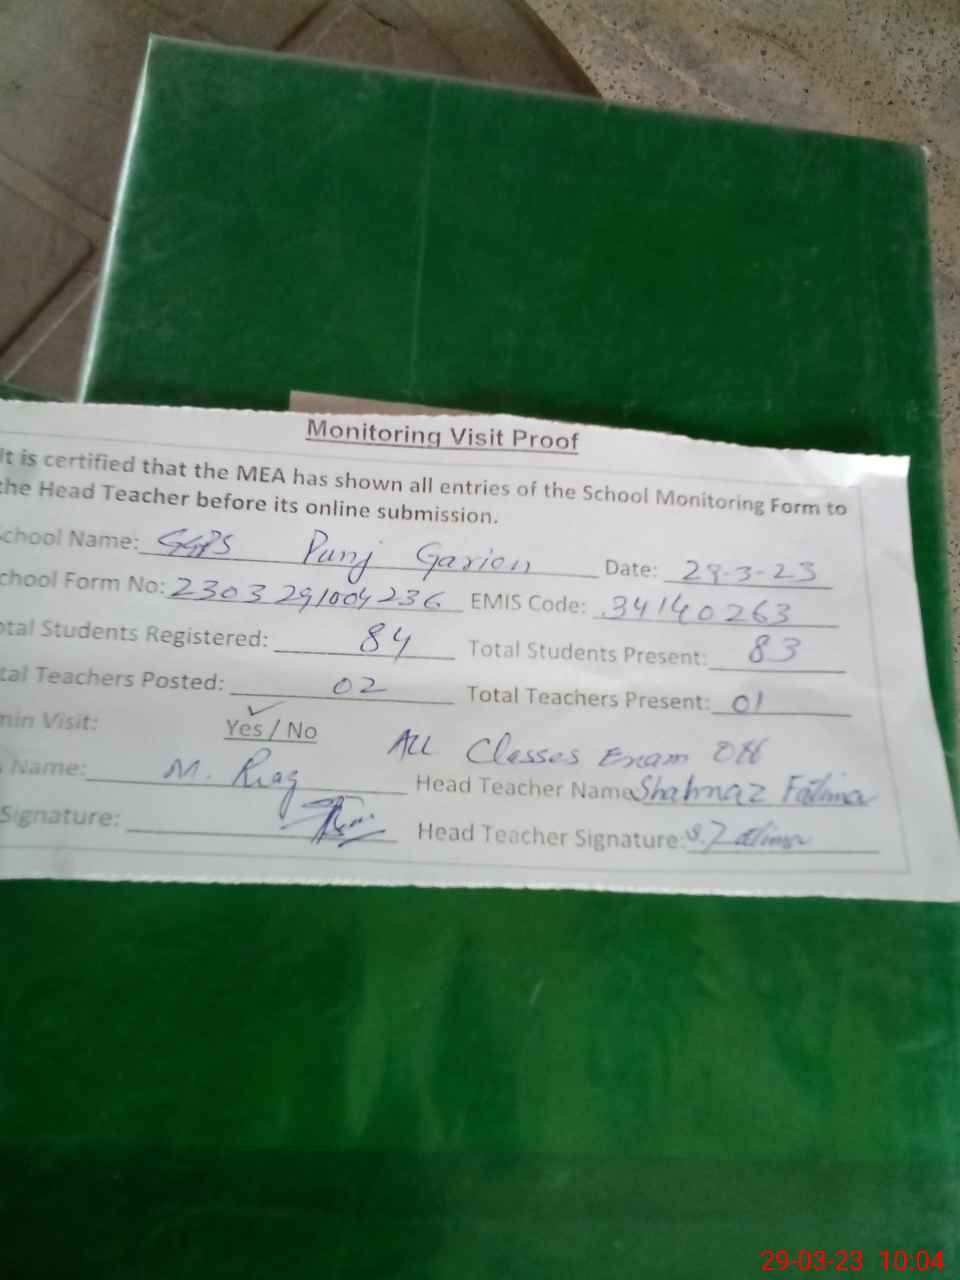 Monitoring Visit Proof
It is certified that the MEA has shown all entries of the School Monitoring Form to
the Head Teacher before its online submission.
chool Name: GGPS Punj Garion Date: 29-3-23
chool Form No: 2303291004236 EMIS Code: 34140263
otal Students Registered: 84 Total Students Present: 83
tal Teachers Posted: 02 Total Teachers Present: 01
min Visit: Yes / No All Classes Exam Off
Name: M. Riaz Head Teacher Name Shahnaz Fatima
Signature: Head Teacher Signature: S. Fatima
29-03-23 10:04